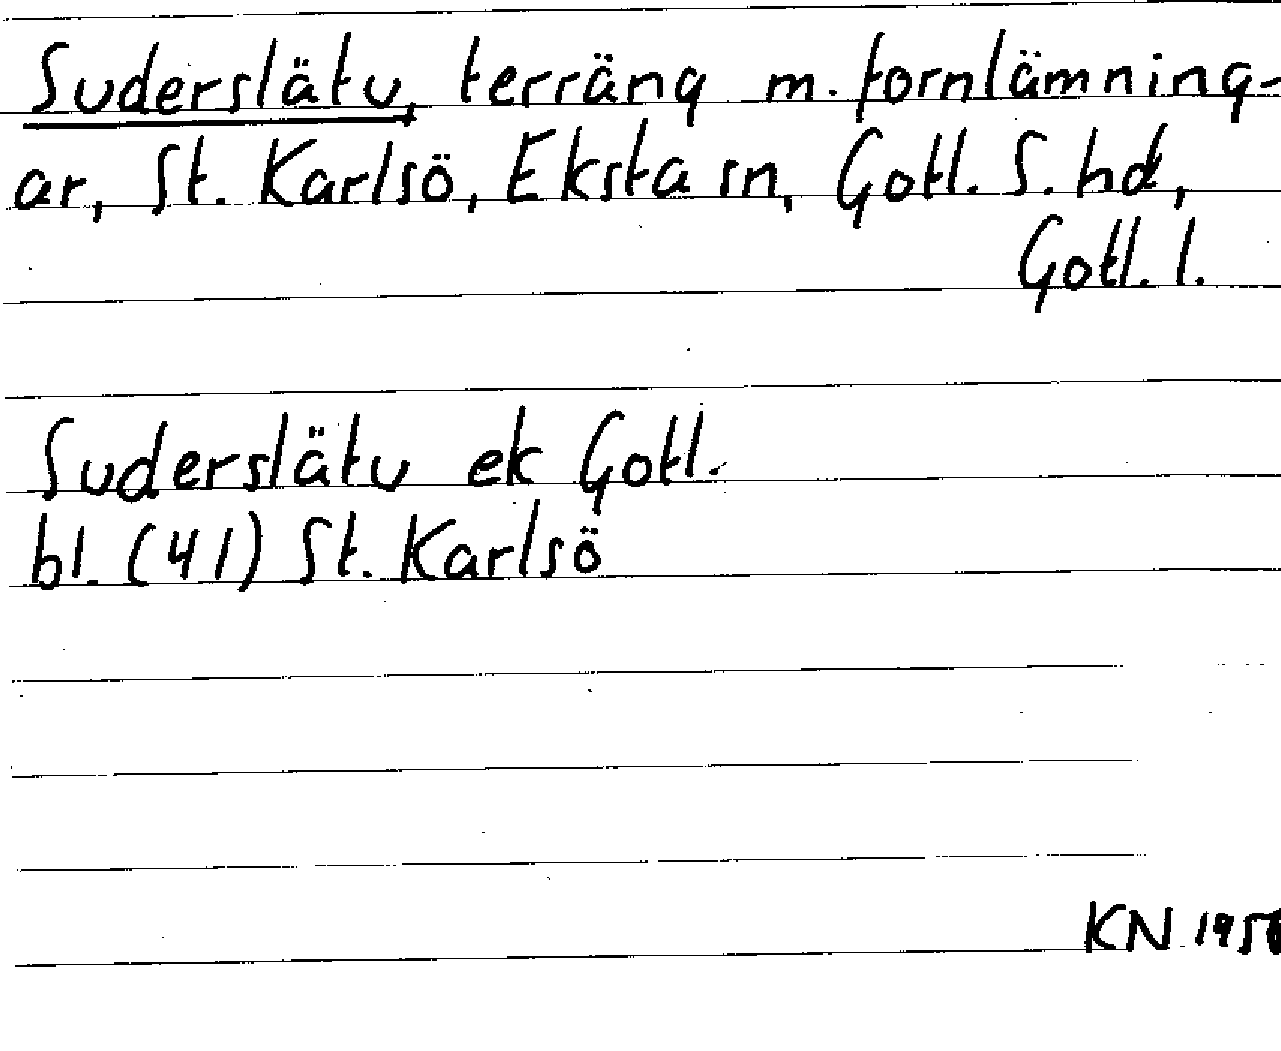 Suderslätu, terräng m. fornlämning-
ar, St. Karlsö, Eksta sn, Gotl. S. hd,
Gotl. l.
Suderslätu ek Gotl.
bl. (41) St. Karlsö
KN